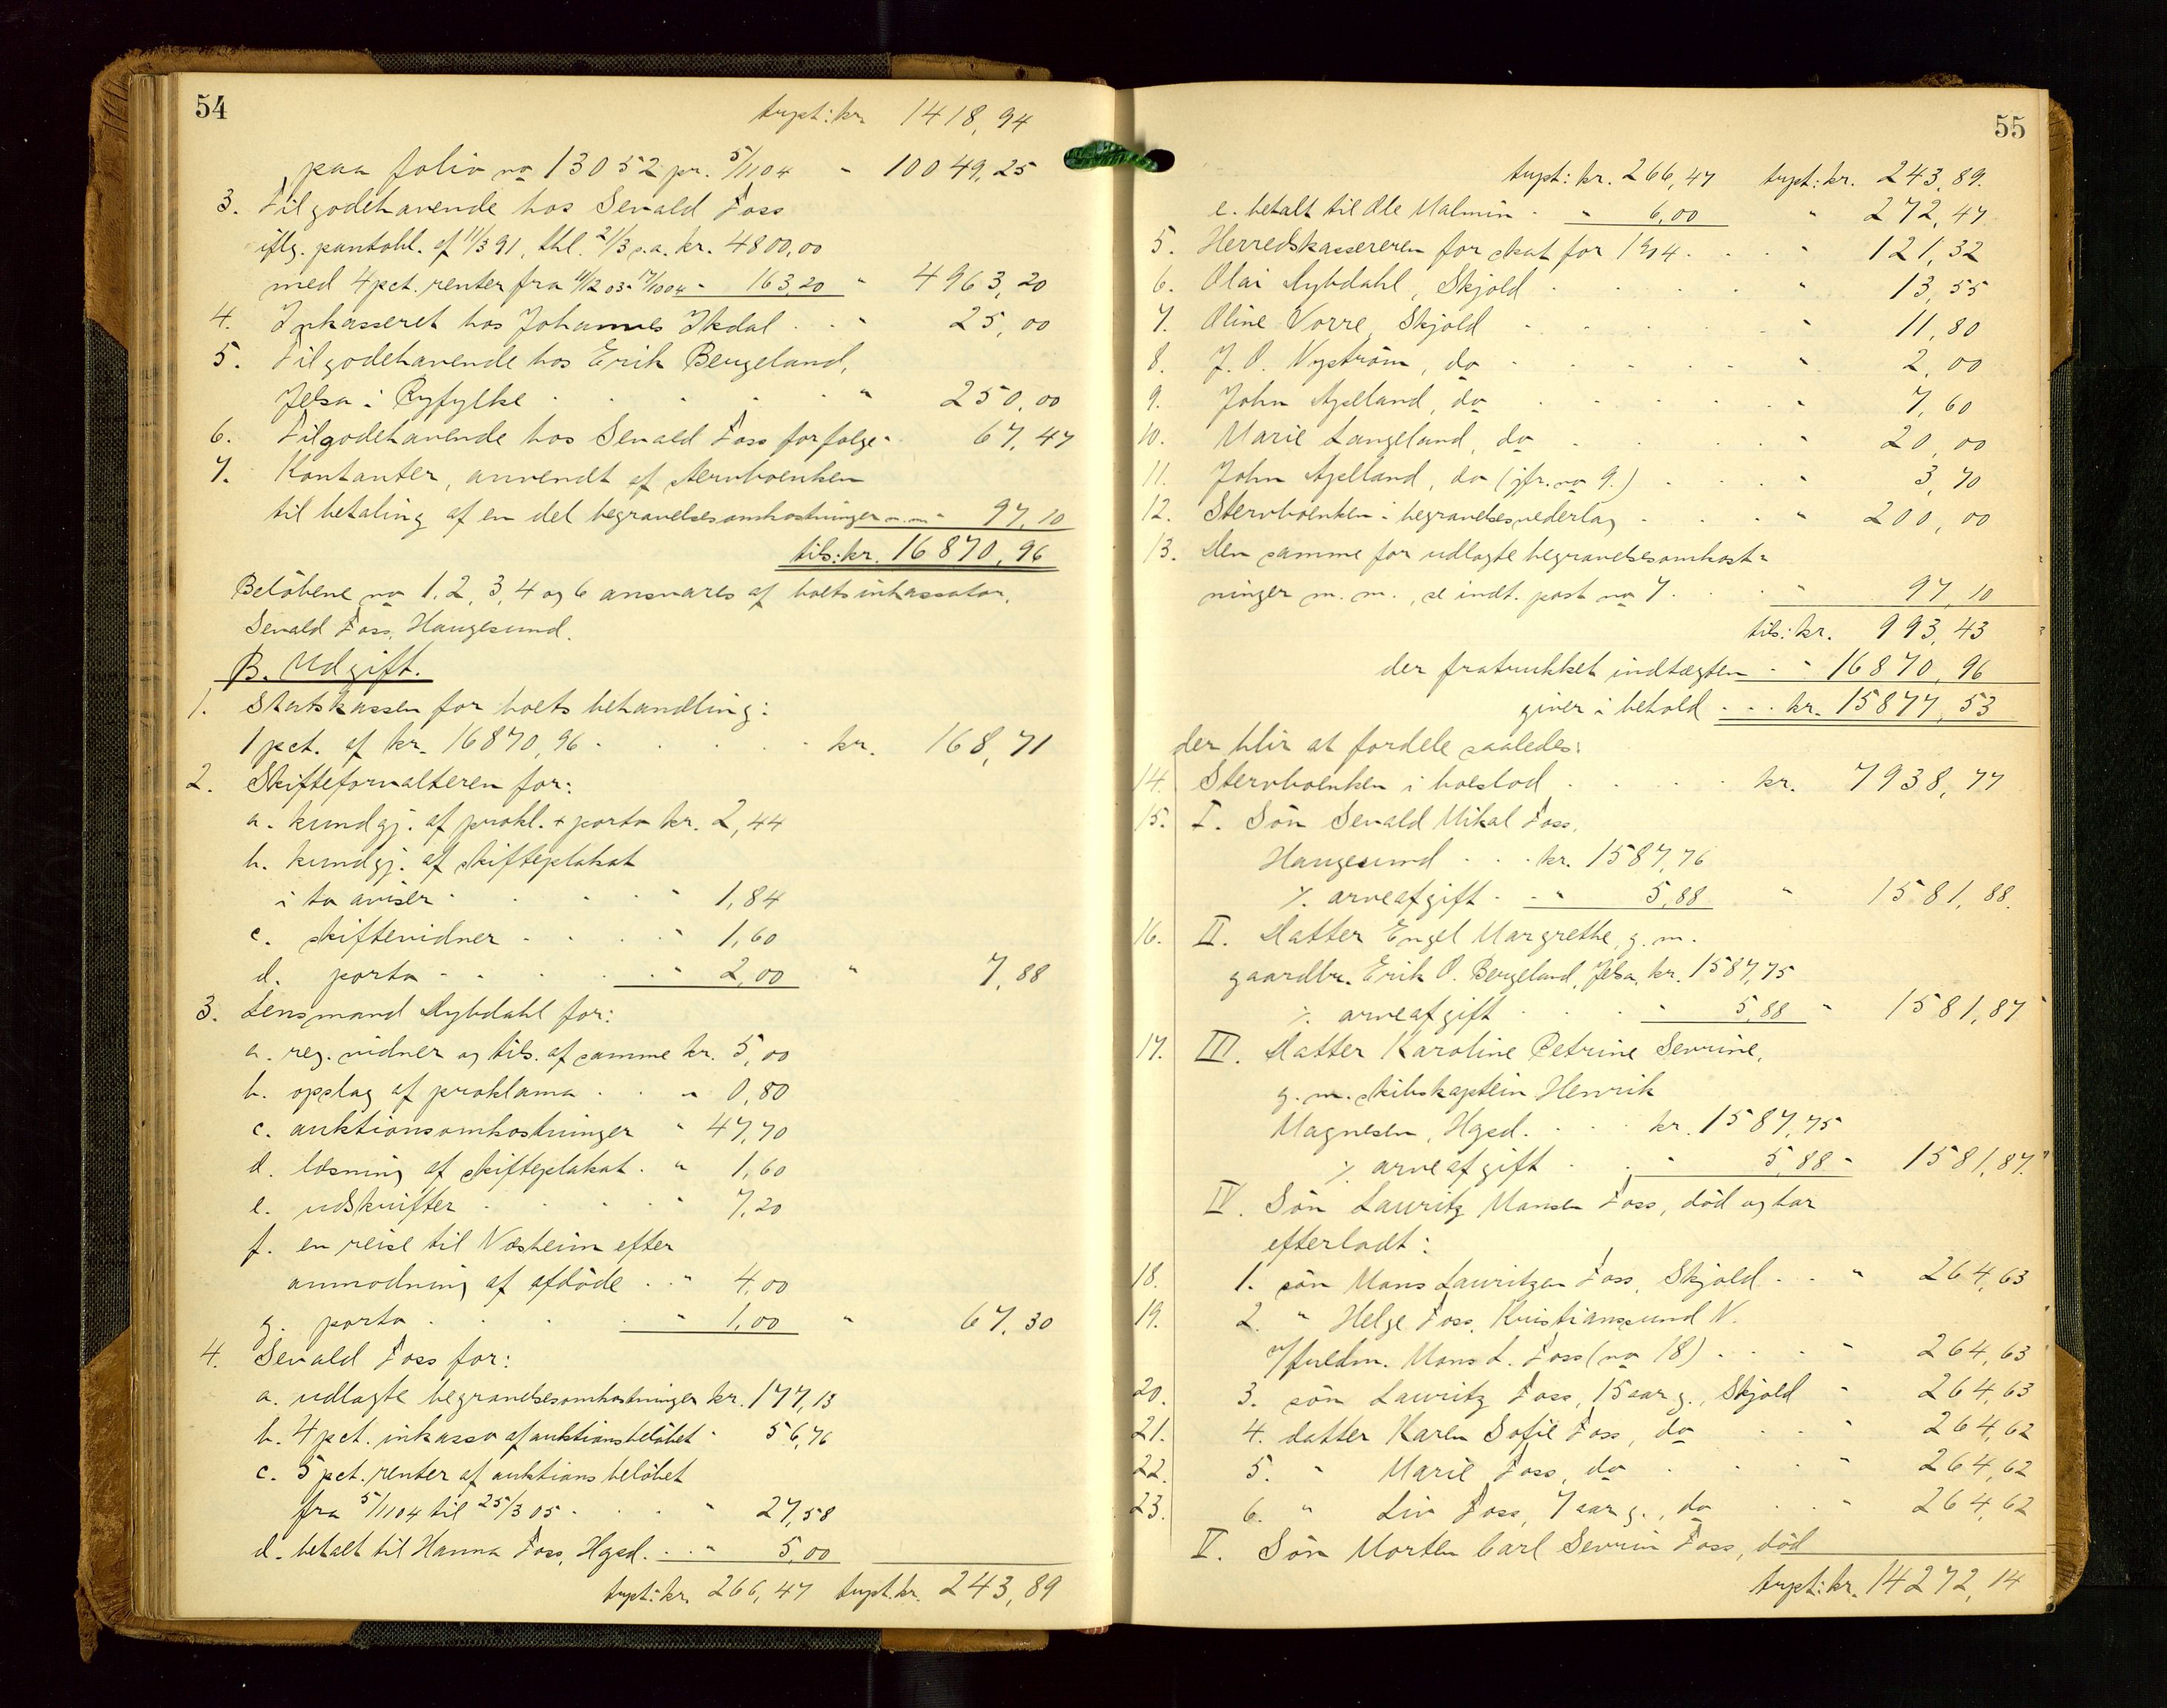 54
trspt: kr. 1418,94
paa folio no 13052 pr. 5/11 04 " 10049,25
3. Tilgodehavende hos Sevald Foss
iflg. pantobl. af 11/3 91, thl. 21/3 s.a. kr. 4800,00
med 4 pct. renter fra 11/12 03 - 17/10 04 " 163,20 " 4963,20
4. Inkasseret hos Johannes Ikdal . . " 25,00
5. Tilgodehavende hos Erik Bergeland,
Jelsa i Ryfylke . . . . . " 250,00
6. Tilgodehavende hos Sevald Foss for følge " 67,47
7. Kontanter, anvendt af stervboenken
til betaling af en del begravelsesomkostninger m.m. " 97,10
tils: kr. 16870,96
Beløbene no 1, 2, 3, 4 og 6 ansvares af boets inkassator,
Sevald Foss, Haugesund.
B. Udgift.
1. Statskassen for boets behandling:
1 pct. af kr. 16870,96 . . . . . kr. 168,71
2. Skifteforvalteren for:
a. kundgj. af prokl. + porto kr. 2,44
b. kundgj. af skifteplakat
i to aviser . . . . " 1,84
c. skiftevidner . . . . " 1,60
d. porto . . . . . " 2,00 " 7,88
3. Lensmand Dybdahl for:
a. reg. vidner og tils. af samme kr. 5,00
b. opslag af proklama . . " 0,80
c. auktionsomkostninger " 47,70
d. læsning af skifteplakat . " 1,60
e. udskrifter . . . . " 7,20
f. en reise til Næsheim efter
anmodning af afdøde . . " 4,00
g. porto . . . . " 1,00 " 67,30
4. Sevald Foss for:
a. udlagte begravelsesomkostninger kr. 177,13
b. 4 pct. inkasso af auktionsbeløbet " 56,76
c. 5 pct. renter af auktionsbeløbet
fra 5/11 04 til 25/3 05 . . . " 27,58
d. betalt til Hanna Foss, Hgsd. . . " 5,00
trspt: kr. 266,47 trspt. kr. 243,89
55
trspt: kr. 266,47 trspt: kr. 243,89.
e. betalt til Ole Malmin . " 6,00 " 272,47
5. Herredskassereren for skat for 1904 . . . " 121,32
6. Olai Dybdahl, Skjold . . . . . " 13,55
7. Oline Vorre, Skjold . . . . . " 11,80
8. J. O. Nystrøm, do . . . . . " 2,00
9. John Apelland, do . . . . . " 7,60
10. Marie Langeland, do . . . . " 20,00
11. John Apelland, do (jfr. no 9.) . . . " 3,70
12. Stervboenken i begravelsesvederlag . . . " 200,00
13. Den samme for udlagte begravelsesomkost-
ninger m. m., se indt. post no 7 . . " 97,10
tils: kr. 993,43
der fratrukket indtægten . " 16870,96
giver i behold . . . kr. 15877,53
der blir at fordele saaledes:
14. Stervboenken i boeslod . . . . kr. 7938,77
15. I. Søn Sevald Mikal Foss,
Haugesund . . . kr. 1587,76
% arveafgift . . " 5,88 " 1581,88.
16. II. Datter Engel Margrethe, g. m.
gaardbr. Erik O. Bergeland, Jelsa, kr. 1587,75
% arveafgift . . . " 5,88 " 1581,87
17. III. Datter Karoline Petrine Sevrine,
g. m. skibskaptein Henrik
Magnesen, Hgsd. . . . kr. 1587,75
% arveafgift . . " 5,88 " 1581,87.
IV. Søn Lauritz Monsen Foss, død og har
efterladt:
18. 1. søn Mons Lauritzen Foss, Skjold . . " 264,63
19. 2. " Helge Foss, Kristianssund N.
v/ fuldm. Mons L. Foss (no 18) . . . " 264,63
20. 3. søn Lauritz Foss, 15 aar g., Skjold " 264,63
21. 4. datter Karen Sofie Foss, do . . " 264,62
22. 5. " Marie Foss, do . . . . " 264,62
23. 6. " Liv Foss, 7 aar g., do . . " 264,62
V. Søn Morten Carl Sevrin Foss, død
trspt: kr. 14272,14